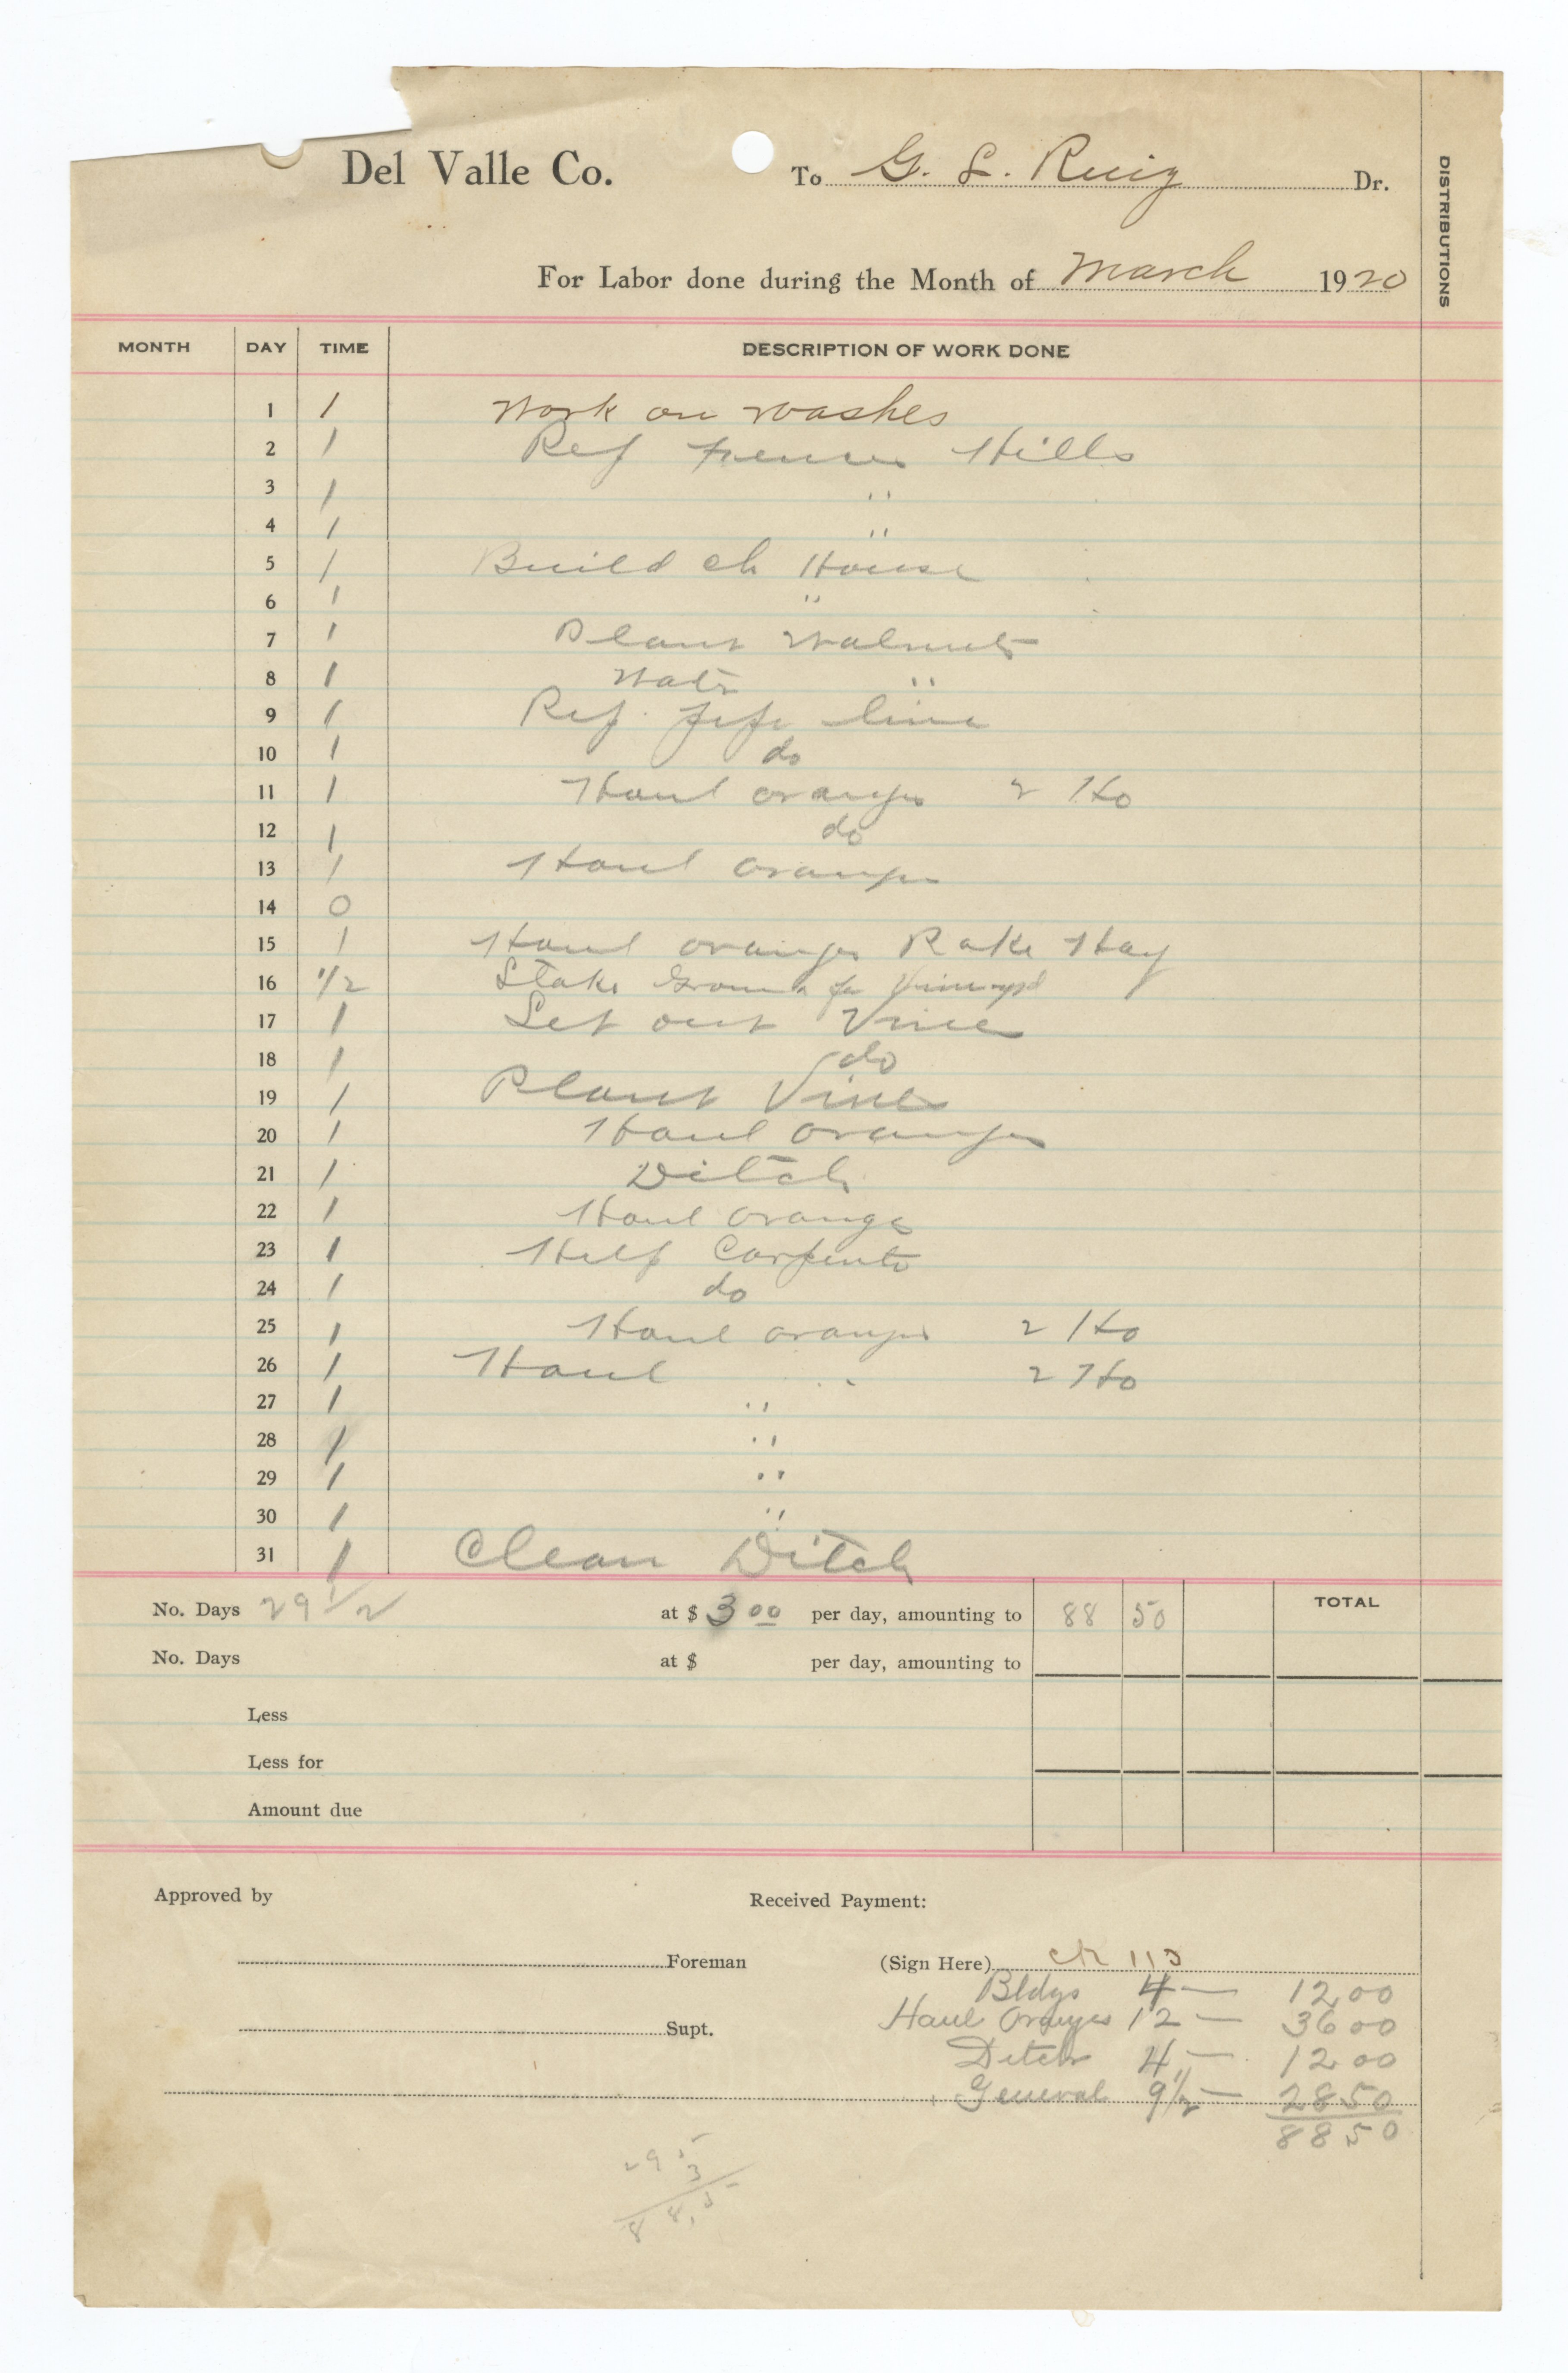 Del Valle Co. To G. L. Ruiz Dr.
DISTRIBUTIONS
For Labor done during the Month of March 1920
MONTH DAY TIME DESCRIPTION OF WORK DONE
1 1 Work on washes
2 1 Rep fences Hills
3 1 "
4 1 "
5 1 Build ch House
6 1 "
7 1 Plant Walnuts
8 1 Watr "
9 1 Rep. pipe line
10 1 do
11 1 Haul oranges 2 Ho
12 1 do
13 1 Haul oranges
14 0
15 1 Haul oranges Rake Hay
16 1/2 Stake Ground for Vineyd
17 1 Set out Vines
18 1 do
19 1 Plant Vines
20 1 Haul oranges
21 1 Ditch
22 1 Haul oranges
23 1 Help Carpenter
24 1 do
25 1 Haul oranges 2 Ho
26 1 Haul " 2 Ho
27 1 "
28 1 "
29 1 "
30 1 "
31 1 Clean Ditch
No. Days 29 1/2 at $ 3 00 per day, amounting to 88 50 TOTAL
No. Days at $ per day, amounting to
Less
Less for
Amount due
Approved by Received Payment:
Foreman (Sign Here) ck 113
Bldgs 4 — 12 00
Supt. Haul Oranges 12 — 36 00
Ditch 4 — 12 00
General 9 1/2 — 28 50
88 50
29 5
3
88.5